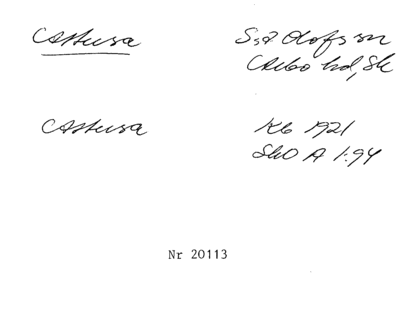 Attusa S:t Olofs sn
Albo hd, Sk
Attusa Kb 1921
SkO A 1:94
Nr 20113